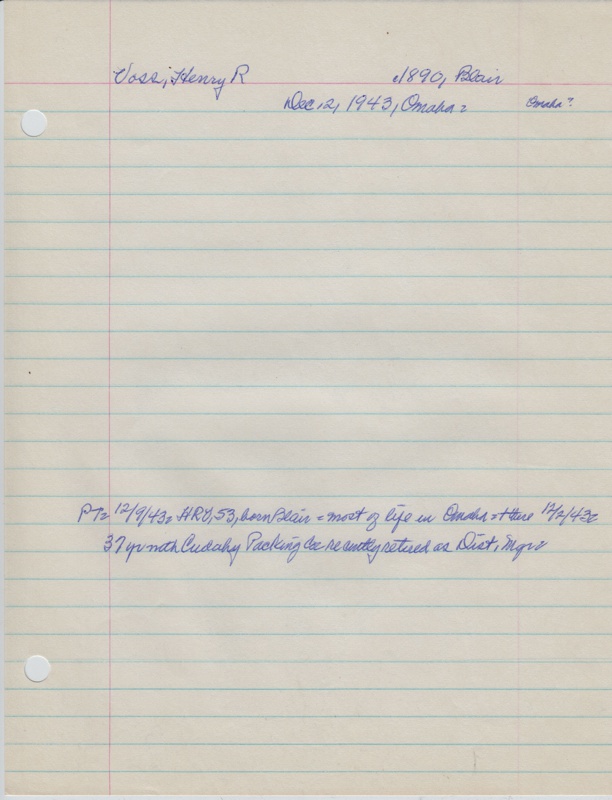 Voss, Henry R c1890, Blair
Dec 12, 1943, Omaha = Omaha?
PT= 12/9/43= HRV, 53, born Blair = most of life in Omaha + there 12/2/43=
37 yr with Cudahy Packing Co recently retired as Dist, Mgr=